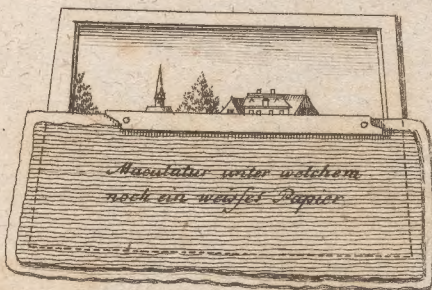 Maculatur unter welchem
noch ein weisses Papier